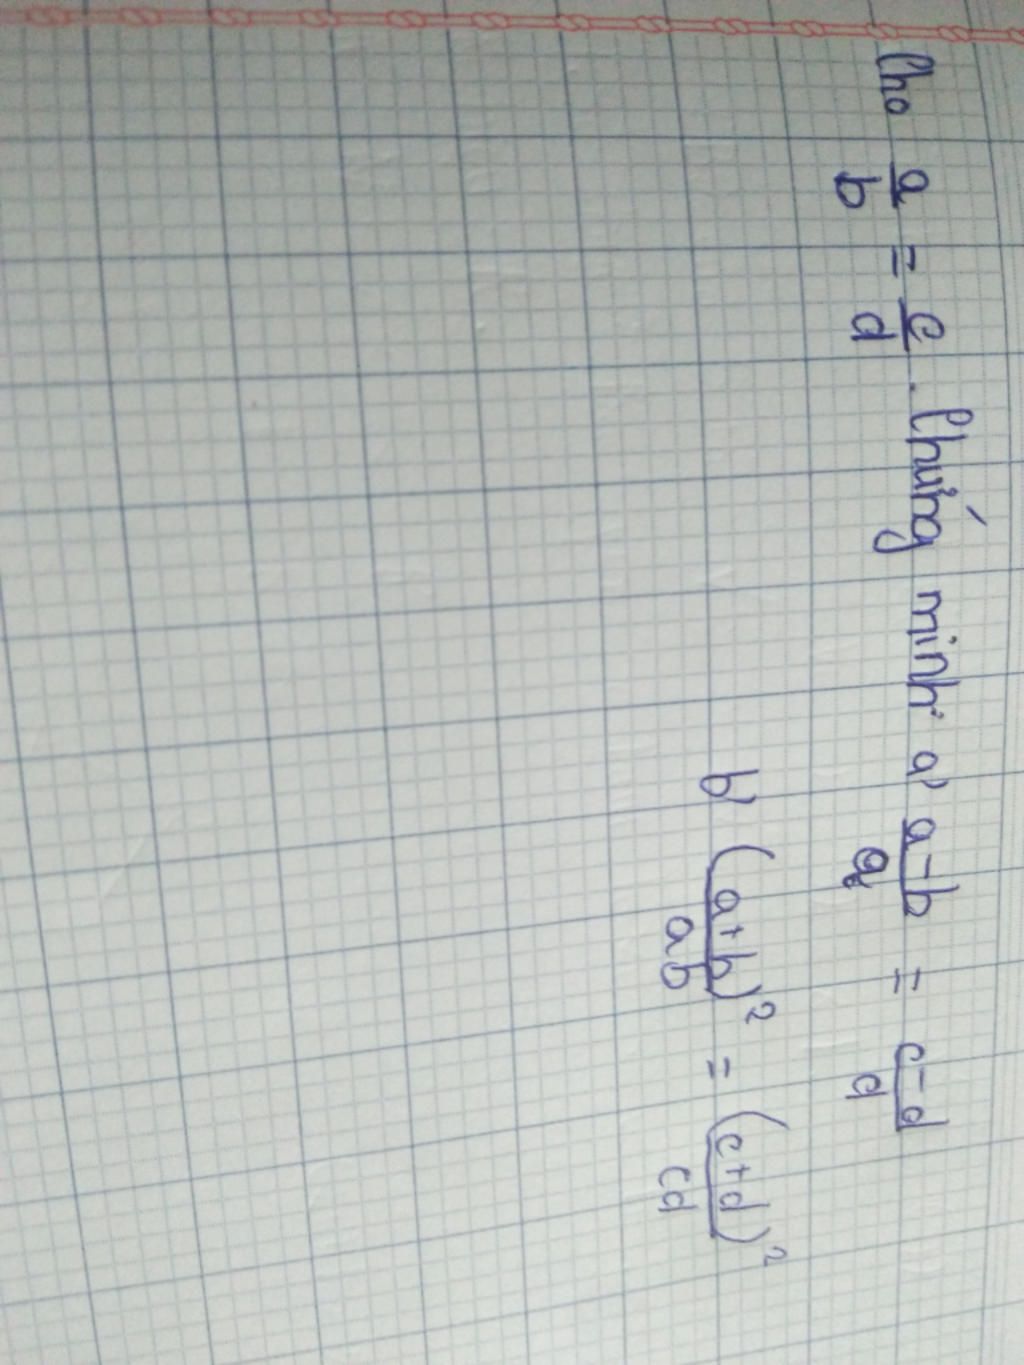 Cho a/b = c/d . Chứng minh: a) a-b/a = c-d/d
b) (a+b)²/ab = (c+d)²/cd